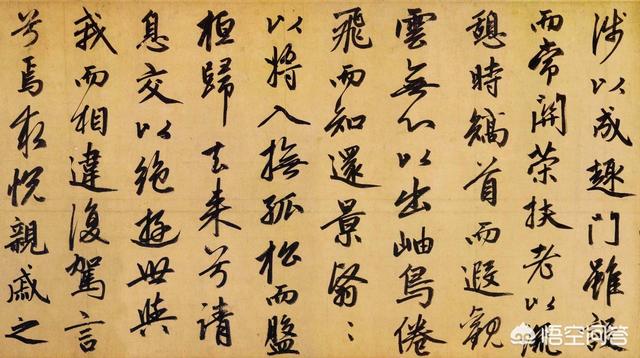 涉以成趣門雖設
而常關策扶老以流
憩時矯首而遐觀
雲無心以出岫鳥倦
飛而知還景翳〻
以將入撫孤松而盤
桓歸去来兮請
息交以絶遊世與
我而相違復駕言
兮焉求悅親戚之
悟空问答